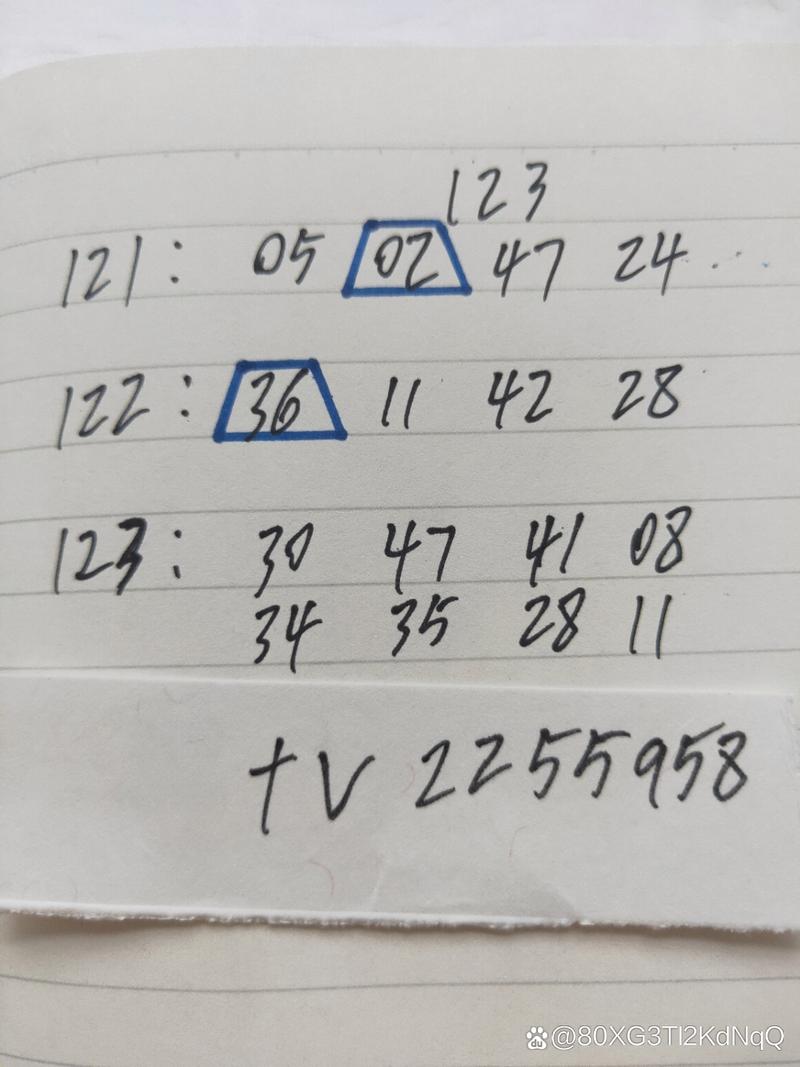 123
121: 05 02 47 24...
122: 36 11 42 28
123: 30 47 41 08
34 35 28 11
+V 2255958
du @80XG3Tl2KdNqQ